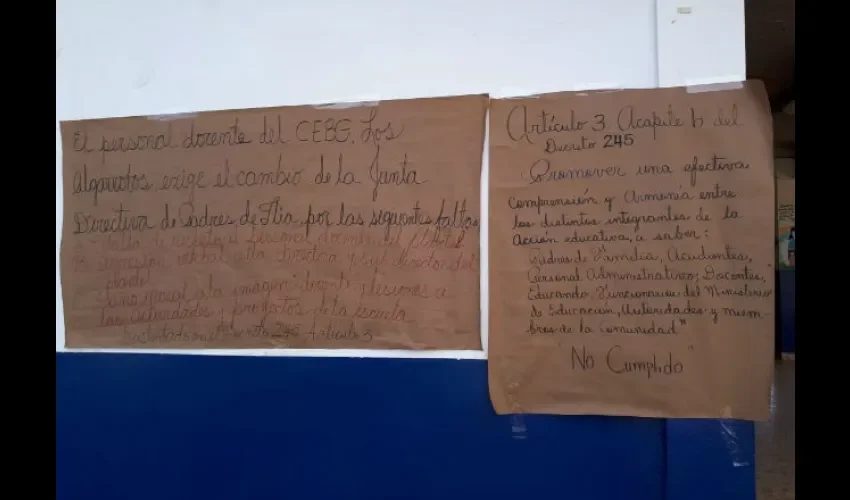 El personal docente del CEBG. Los
Algarrobos exige el cambio de la Junta
Directiva de Padres de Flia, por las siguientes faltas
Falta de respeto al personal docente del plantel
B. agresión verbal a la directora y sub director del
plantel
C. Daño moral a la imagen docente, lesiones a
las autoridades y proyectos de la escuela
Decreto 245 Artículo 3
Artículo 3 Acapite b del
Decreto 245
Promover una efectiva
comprensión y Armonía entre
los distintos integrantes de la
Acción educativa, a saber:
Padres de Familia, Acudientes,
Personal Administrativo; Docentes,
Educando, Funcionarios del Ministerio
de Educación, Autoridades y miem-
bros de la Comunidad"
"No Cumplido"